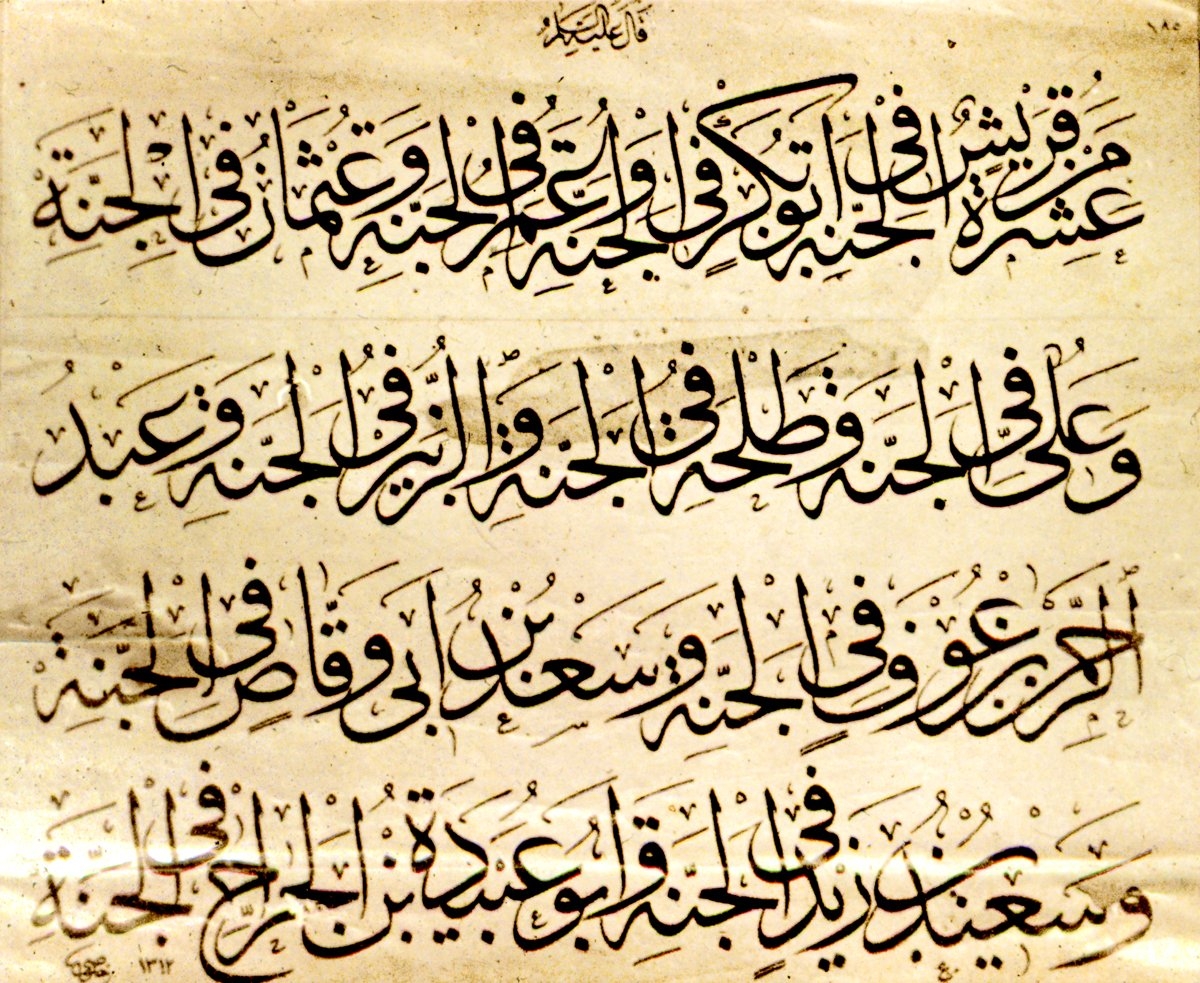 ١٨٥
قال عليه السلام
عشرة من قريش في الجنة ابو بكر في الجنة وعمر في الجنة وعثمان في الجنة
وعلي في الجنة وطلحة في الجنة والزبير في الجنة وعبد
الرحمن بن عوف في الجنة وسعد بن ابي وقاص في الجنة
وسعيد بن زيد في الجنة وابو عبيدة بن الجراح في الجنة
١٣١٢